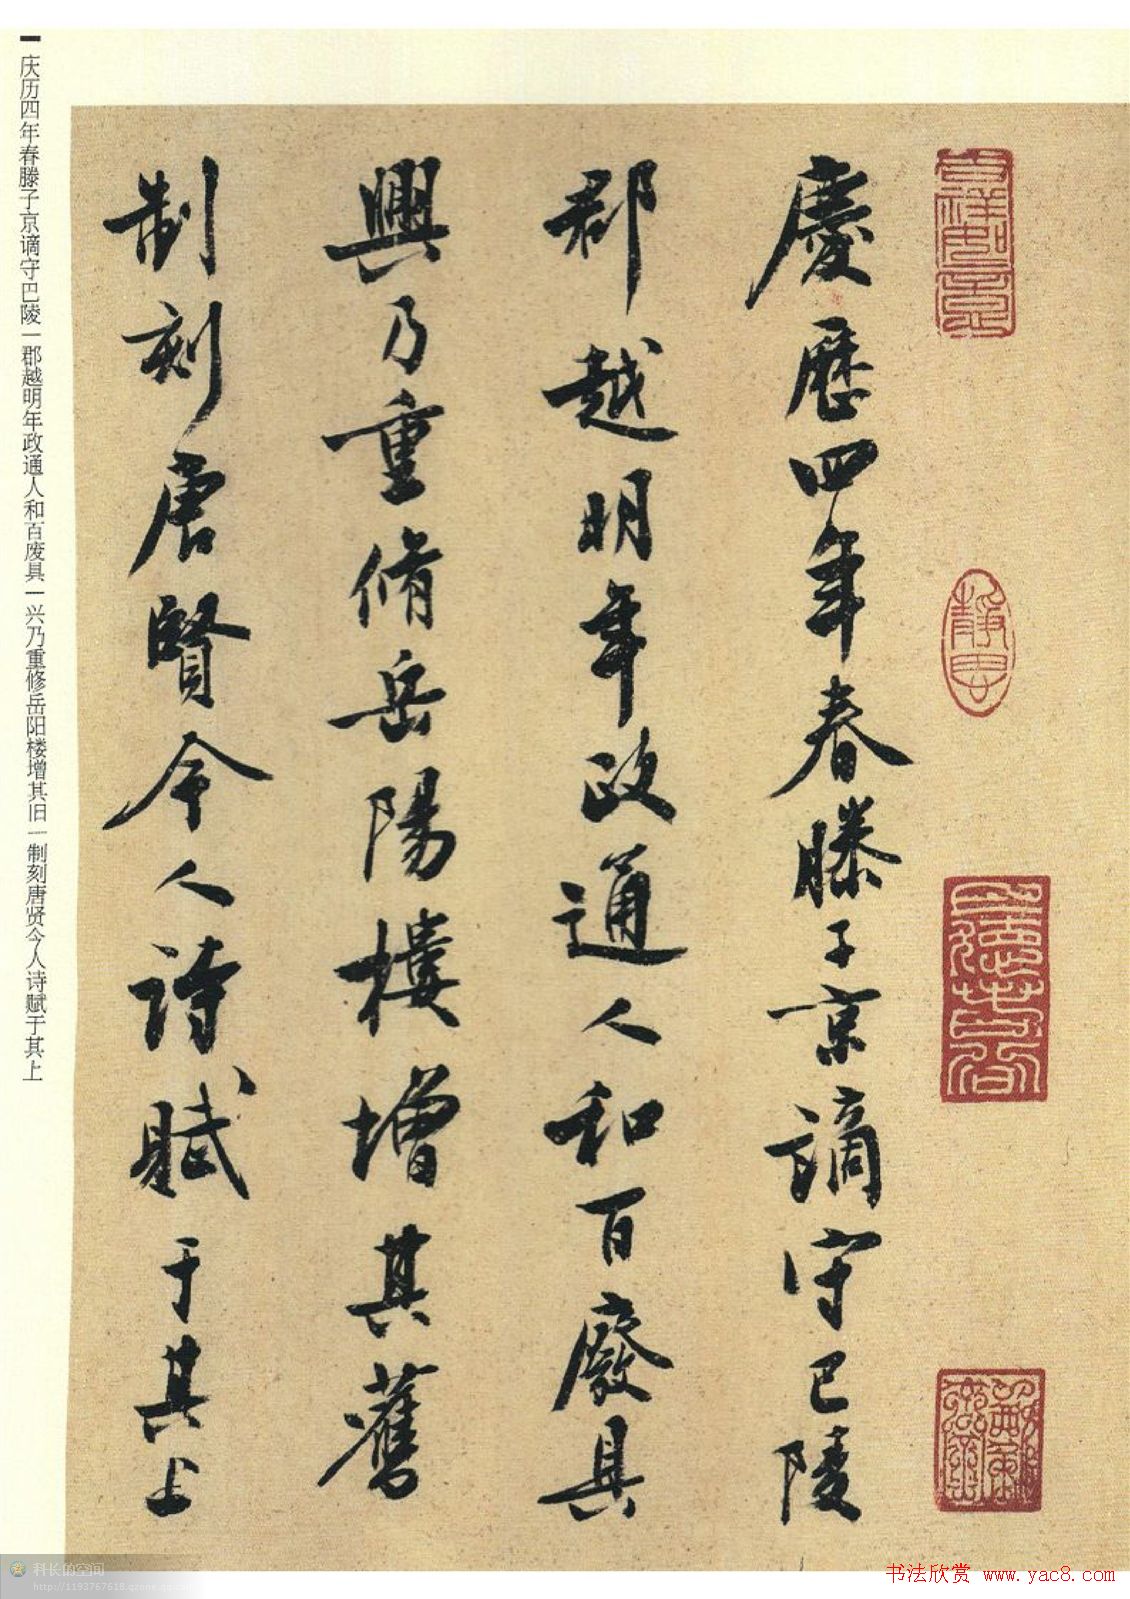 慶歷四年春滕子京謫守巴陵
郡越明年政通人和百廢具
興乃重脩岳陽樓增其舊
制刻唐賢今人詩賦于其上
庆历四年春滕子京谪守巴陵一郡越明年政通人和百废具一兴乃重修岳阳楼增其旧一制刻唐贤今人诗赋于其上
科长的空间
http://1193767618.qzone.qq.com
书法欣赏 www.yac8.com